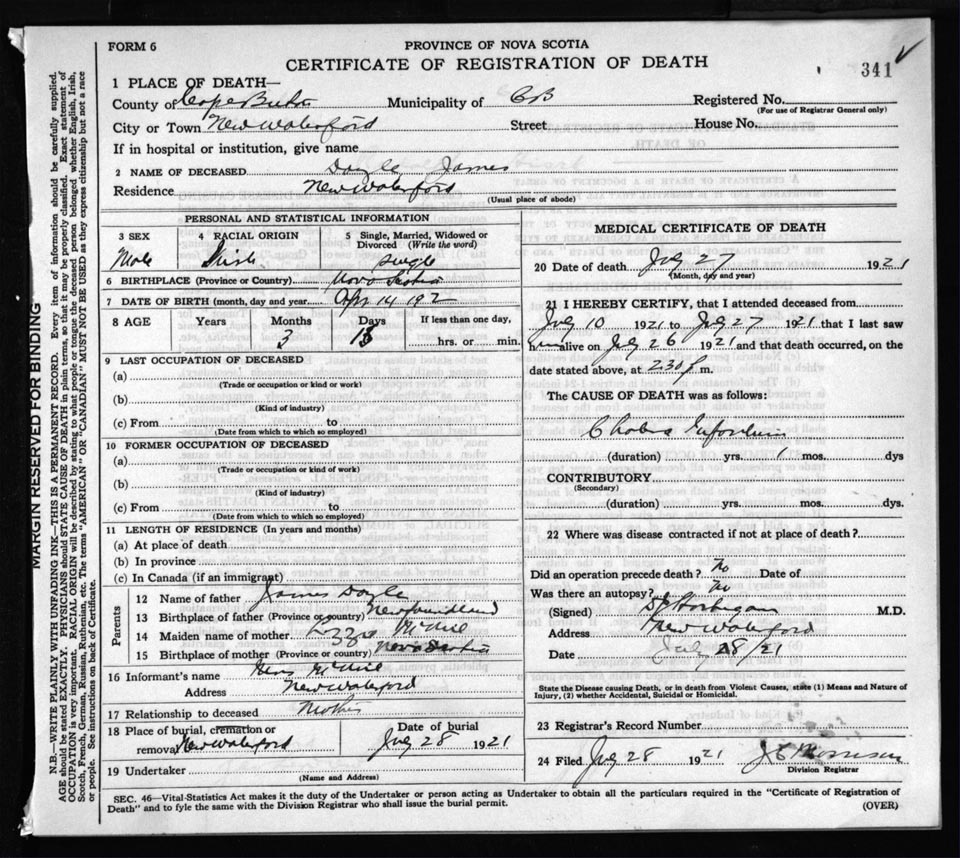 FORM 6
PROVINCE OF NOVA SCOTIA
CERTIFICATE OF REGISTRATION OF DEATH
341
1 PLACE OF DEATH—
County of Cape Breton Municipality of CB Registered No.
(For use of Registrar General only)
City or Town New Waterford Street House No.
If in hospital or institution, give name
2 NAME OF DECEASED Doyle James
Residence New Waterford
(Usual place of abode)
PERSONAL AND STATISTICAL INFORMATION
3 SEX 4 RACIAL ORIGIN 5 Single, Married, Widowed or Divorced (Write the word)
Male Irish single
6 BIRTHPLACE (Province or Country) Nova Scotia
7 DATE OF BIRTH (month, day and year) Apr 14 192
8 AGE Years Months Days If less than one day,
3 hrs. or min.
9 LAST OCCUPATION OF DECEASED
(a)
(Trade or occupation or kind or work)
(b)
(Kind of industry)
(c) From to
(Date from which to which so employed)
10 FORMER OCCUPATION OF DECEASED
(a)
(Trade or occupation or kind of work)
(b)
(Kind of industry)
(c) From to
(Date from which to which so employed)
11 LENGTH OF RESIDENCE (In years and months)
(a) At place of death
(b) In province
(c) In Canada (if an immigrant)
Parents
12 Name of father James Doyle
13 Birthplace of father (Province or country) Newfoundland
14 Maiden name of mother McNeil
15 Birthplace of mother (Province or country) Nova Scotia
16 Informant's name McNeil
Address New Waterford
17 Relationship to deceased Mother
18 Place of burial, cremation or removal New Waterford
Date of burial July 28 1921
19 Undertaker
(Name and Address)
MEDICAL CERTIFICATE OF DEATH
20 Date of death July 27 1921
(Month, day and year)
21 I HEREBY CERTIFY, that I attended deceased from
July 10 1921 to July 27 1921 that I last saw
him alive on July 26 1921 and that death occurred, on the
date stated above, at 2 30 p m.
The CAUSE OF DEATH was as follows:
Cholera Infantum
(duration) yrs. 1 mos. dys
CONTRIBUTORY
(Secondary)
(duration) yrs. mos. dys.
22 Where was disease contracted if not at place of death?
Did an operation precede death? No Date of
Was there an autopsy? No
(Signed) M.D.
Address New Waterford
Date July 28/21
State the Disease causing Death, or in death from Violent Causes, state (1) Means and Nature of Injury, (2) whether Accidental, Suicidal or Homicidal.
23 Registrar's Record Number
24 Filed July 28 1921 Morrison
Division Registrar
SEC. 46—Vital-Statistics Act makes it the duty of the Undertaker or person acting as Undertaker to obtain all the particulars required in the "Certificate of Registration of
Death" and to fyle the same with the Division Registrar who shall issue the burial permit.
(OVER)
MARGIN RESERVED FOR BINDING
N.B.—WRITE PLAINLY WITH UNFADING INK—THIS IS A PERMANENT RECORD. Every item of information should be carefully supplied.
AGE should be stated EXACTLY. PHYSICIANS should STATE CAUSE OF DEATH in plain terms, so that it may be properly classified. Exact statement of
OCCUPATION is very important. RACIAL ORIGIN will be described by stating to what people or tongue the deceased person belonged whether English, Irish,
Scotch, French, German, Russian, Ruthenian, etc. The terms "AMERICAN" or "CANADIAN" MUST NOT BE USED as they express citizenship but not a race
or people. See instructions on back of Certificate.